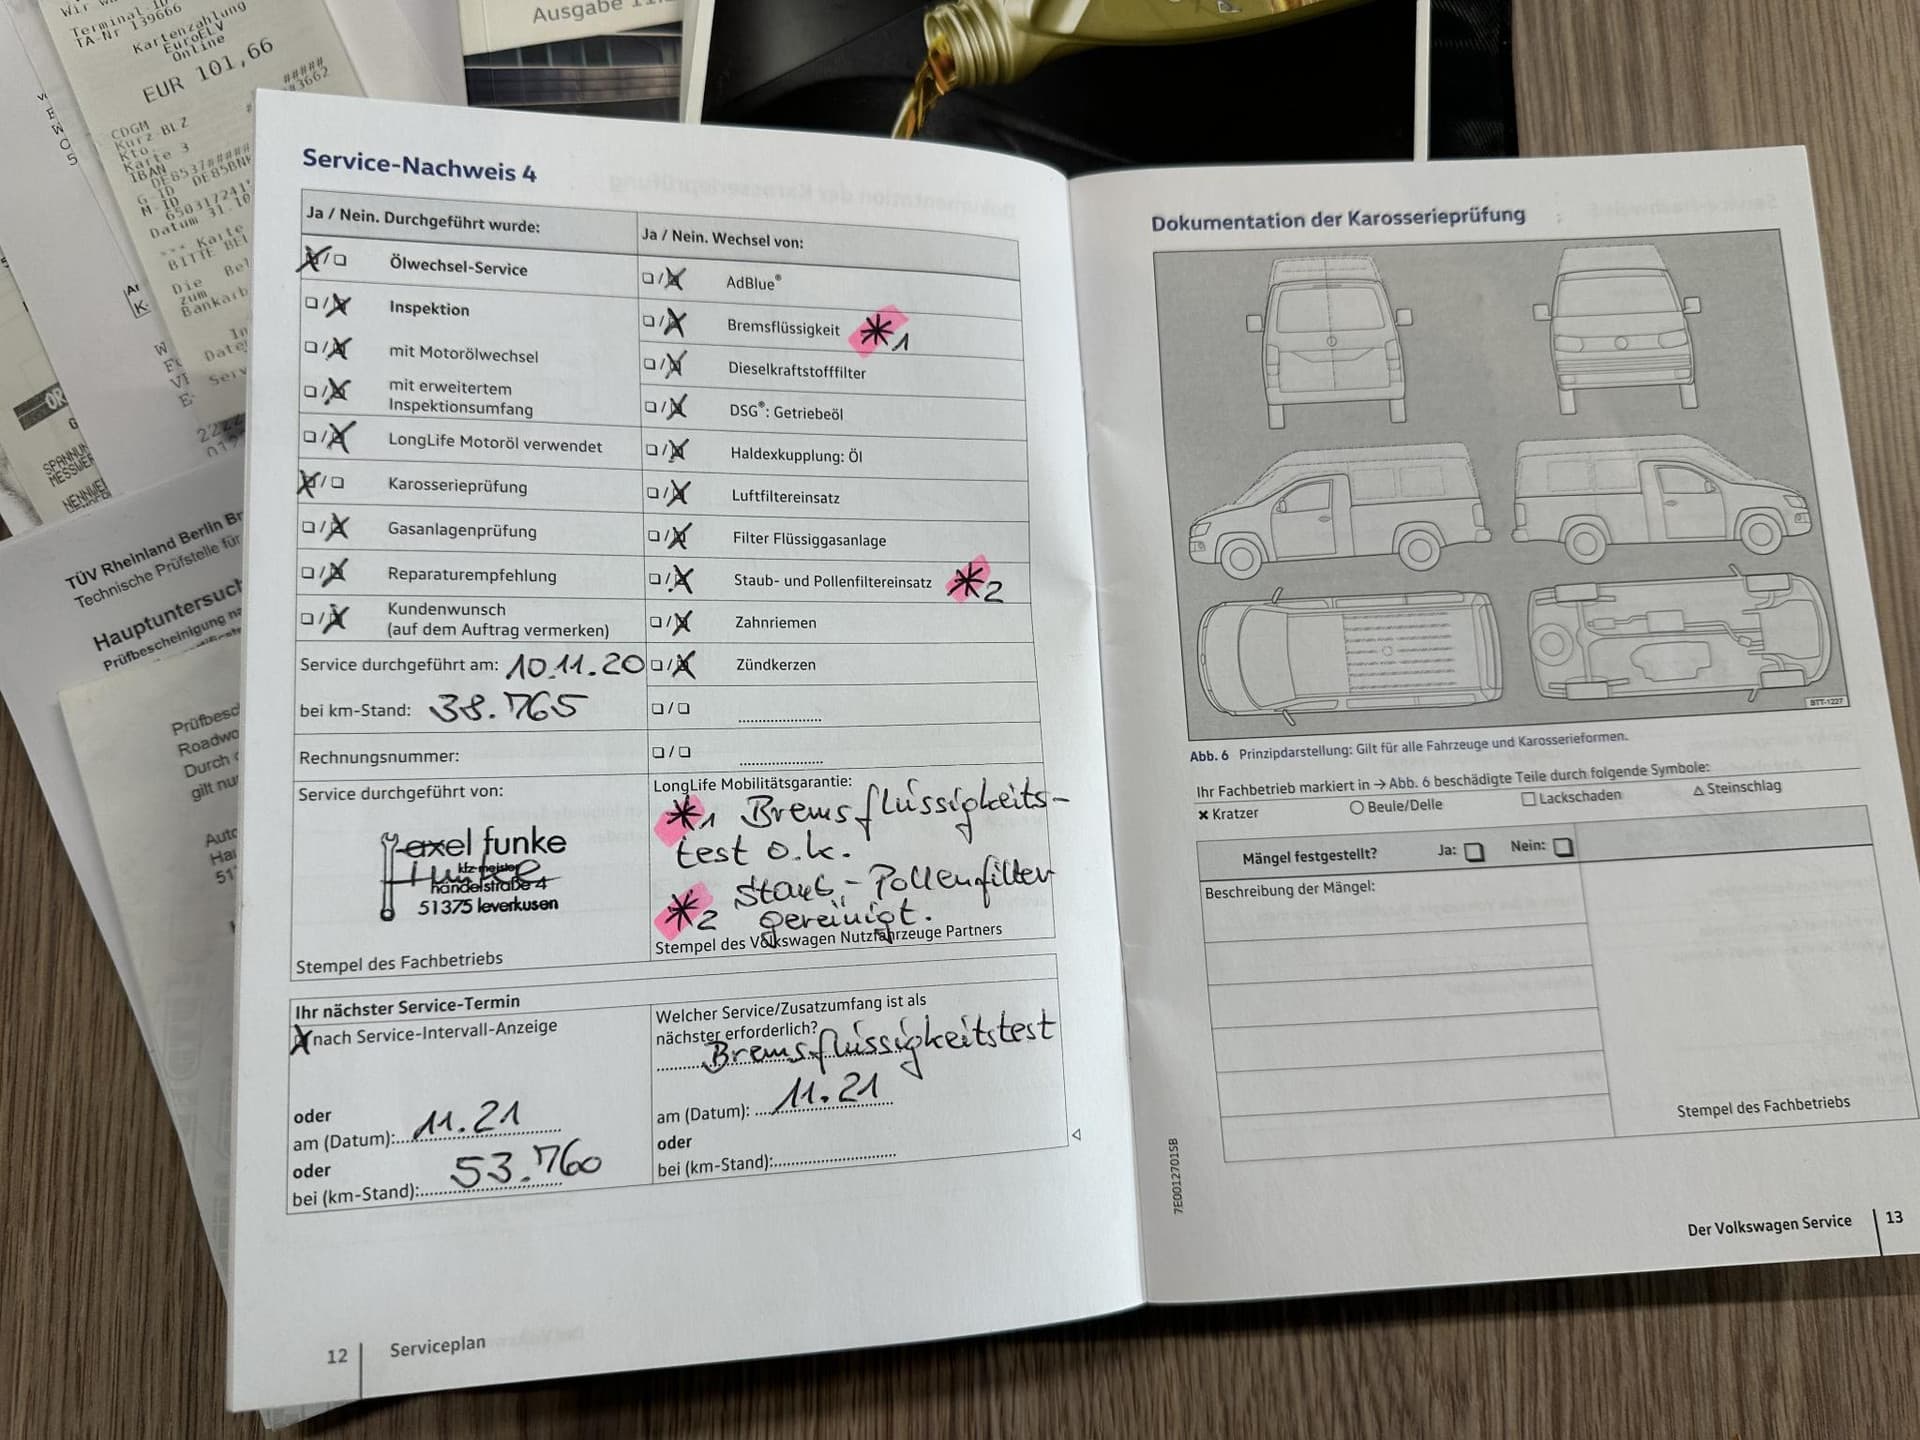 Terminal-ID
TA-Nr 139666
Kartenzahlung
EuroELV
Online
EUR 101,66
#####
#3662
CDGM
Kurz-BLZ
Kto.
Karte 3
IBAN
DE8537#####
G-ID DE85BNK
M-ID
Datum 31.10
*** Karte
BITTE BEI
Die Bel
zum
Bankarb
Ausgabe 11.
TÜV Rheinland Berlin Br
Technische Prüfstelle für
Hauptuntersuch
Prüfbescheinigung na
Prüfbesc
Roadwo
Durch
gilt nur
Auto
Hai
51
SPANNUN
MESSWER
NENNWE
Service-Nachweis 4
Ja / Nein. Durchgeführt wurde:
Ölwechsel-Service
Inspektion
mit Motorölwechsel
mit erweitertem
Inspektionsumfang
LongLife Motoröl verwendet
Karosserieprüfung
Gasanlagenprüfung
Reparaturempfehlung
Kundenwunsch
(auf dem Auftrag vermerken)
Service durchgeführt am: 10.11.20
bei km-Stand: 38.765
Rechnungsnummer:
Service durchgeführt von:
axel funke
kfz-meister
händelstraße 4
51375 leverkusen
Stempel des Fachbetriebs
Ja / Nein. Wechsel von:
AdBlue®
Bremsflüssigkeit *1
Dieselkraftstofffilter
DSG®: Getriebeöl
Haldexkupplung: Öl
Luftfiltereinsatz
Filter Flüssiggasanlage
Staub- und Pollenfiltereinsatz *2
Zahnriemen
Zündkerzen
LongLife Mobilitätsgarantie:
*1 Bremsflüssigkeits-
test o.k.
*2 Staub-Pollenfilter
gereinigt.
Stempel des Volkswagen Nutzfahrzeuge Partners
Ihr nächster Service-Termin
nach Service-Intervall-Anzeige
oder
am (Datum): 11.21
oder
bei (km-Stand): 53.760
Welcher Service/Zusatzumfang ist als
nächster erforderlich?
Bremsflüssigkeitstest
am (Datum): 11.21
oder
bei (km-Stand):
12 Serviceplan
Dokumentation der Karosserieprüfung
BTT-1227
Abb. 6 Prinzipdarstellung: Gilt für alle Fahrzeuge und Karosserieformen.
Ihr Fachbetrieb markiert in → Abb. 6 beschädigte Teile durch folgende Symbole:
× Kratzer ○ Beule/Delle □ Lackschaden △ Steinschlag
Mängel festgestellt? Ja: Nein:
Beschreibung der Mängel:
Stempel des Fachbetriebs
7E0012701SB
Der Volkswagen Service 13